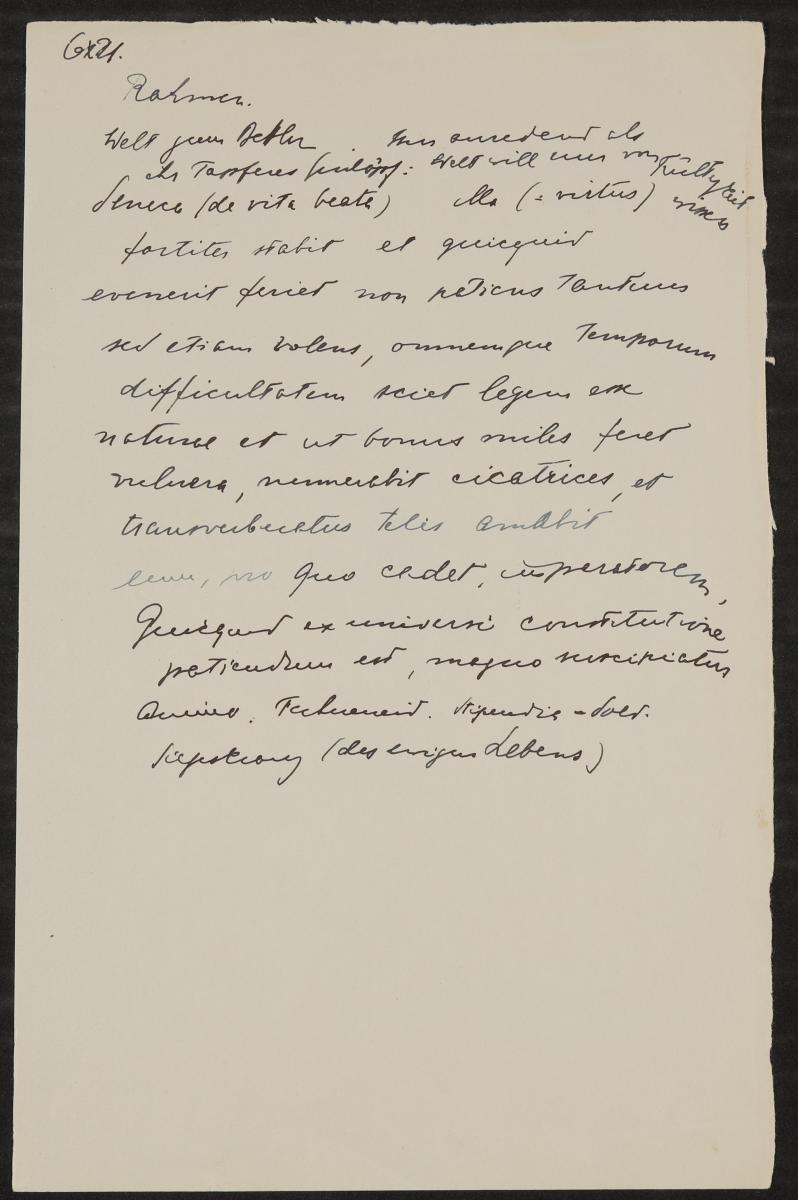 6x21.
Rahmen.
Welt zum Bettler. Ihn anredend als
Tapferes Geschöpf: Welt will nur von Tüchtigkeit
wissen
Seneca (de vita beata) illa (= virtus)
fortiter stabit et quicquid
evenerit feret non patiens tantum
sed etiam volens, omnemque temporum
difficultatem sciet legem esse
naturae et ut bonus miles feret
vulnera, numerabit cicatrices, et
transverberatus telis amabit
eum, pro quo cadet, imperatorem,
Quicquid ex universi constitutione
patiendum est, magno suscipiatur
animo. stipendia = Sold.
(des ewigen Lebens)